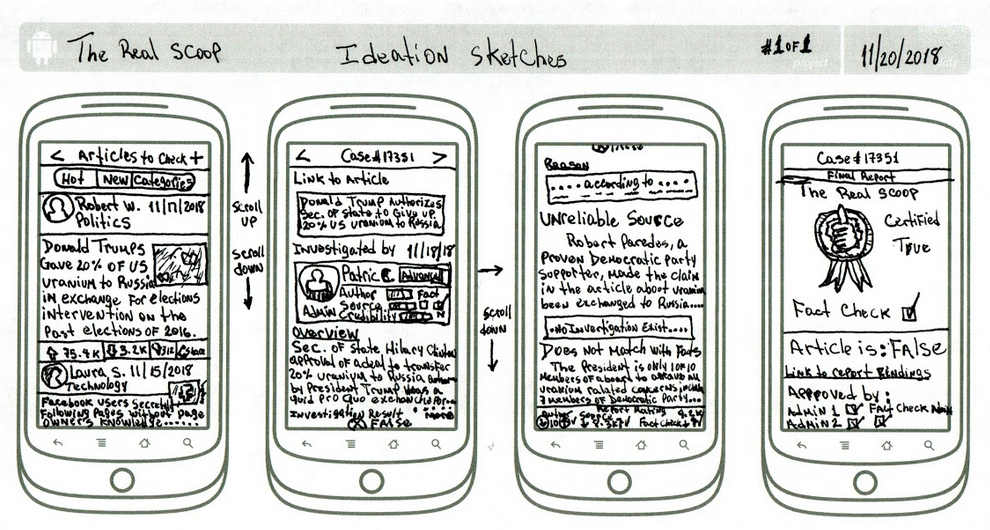 The Real Scoop
Ideation Sketches
#1 of 1
11/20/2018
project
< Articles to Check +
Hot New Categories
Robert W. 11/17/2018
Politics
Donald Trumps
Gave 20% of US
uranium to Russia
in exchange for elections
intervention on the
Past elections of 2016.
75.4K 3.2K 312 Share
Laura, S. 11/15/2018
Technology
Facebook users Secretly
Following Pages without page
owner's knowledge......
scroll
up
scroll
down
< Case #17351 >
Link to Article
Donald Trump Authorizes
Sec. of State to Give up
20% US uranium to Russia
Investigated by 11/18/18
Patric C. Advanced
Author Fact
Source
Admin Credibility
Overview
Sec. of State Hilary Clinton
approval of a deal to transfer
20% uranium to Russia
by President Trump was a
quid pro quo exchange
Investigation Result more
False
scroll
down
Reason
.... according to .....
Unreliable Source
Robert Paredes, a
Proven Democratic Party
supporter, made the claim
in the article about uranium
been exchanged to Russia....
.No Investigation Exist....
Does Not Match with Facts
The President is only 1 of 10
members of a board to
uranium related concerns
7 members of Democratic Party...
Author Source Report Rating 9.2K
Fact Check
Case #17351
Final Report
The Real Scoop
Certified
True
Fact Check
Article is: False
Link to report findings
Approved by:
Admin 1 Fact Check
Admin 2